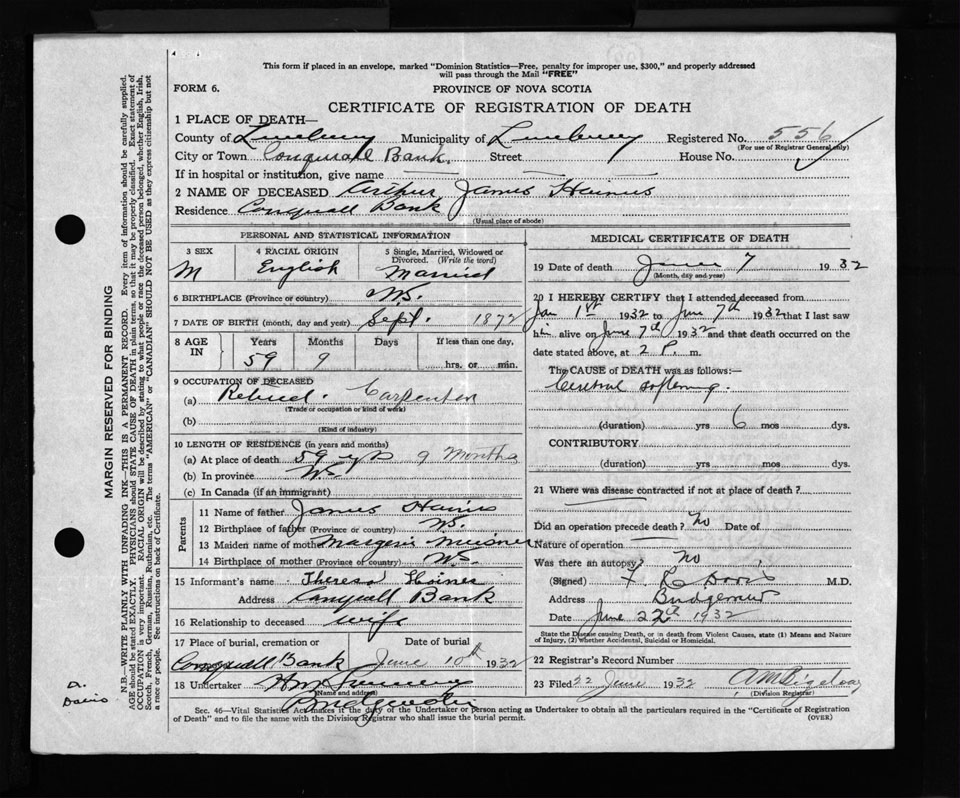 This form if placed in an envelope, marked "Dominion Statistics—Free, penalty for improper use, $300," and properly addressed
will pass through the Mail "FREE"
FORM 6. PROVINCE OF NOVA SCOTIA
CERTIFICATE OF REGISTRATION OF DEATH
1 PLACE OF DEATH—
County of Lunenburg Municipality of Lunenburg Registered No. 556
(For use of Registrar General only)
City or Town Conqurall Bank. Street House No.
If in hospital or institution, give name
2 NAME OF DECEASED Arthur James Haines
Residence Conquall Bank
(Usual place of abode)
PERSONAL AND STATISTICAL INFORMATION
3 SEX 4 RACIAL ORIGIN 5 Single, Married, Widowed or Divorced. (Write the word)
M English Married
6 BIRTHPLACE (Province or country) N.S.
7 DATE OF BIRTH (month, day and year) Sept. 1872
8 AGE IN Years Months Days If less than one day,
59 9 hrs. or min.
9 OCCUPATION OF DECEASED
(a) Retired. Carpenter
(Trade or occupation or kind of work)
(b)
(Kind of industry)
10 LENGTH OF RESIDENCE (in years and months)
(a) At place of death 59 yrs 9 Months
(b) In province N.S.
(c) In Canada (if an immigrant)
Parents
11 Name of father James Haines
12 Birthplace of father (Province or country) N.S.
13 Maiden name of mother Margerie Meisner
14 Birthplace of mother (Province or country) N.S.
15 Informant's name Theresa Haines
Address Conquall Bank
16 Relationship to deceased wife
17 Place of burial, cremation or Date of burial
Conquall Bank June 10th 1932
18 Undertaker
(Name and address)
Bridgewater
MEDICAL CERTIFICATE OF DEATH
19 Date of death June 7 1932
(Month, day and year)
20 I HEREBY CERTIFY that I attended deceased from
Jan 1st 1932 to June 7th 1932 that I last saw
him alive on June 7th 1932 and that death occurred on
date stated above, at 2 P. m.
The CAUSE of DEATH was as follows:—
Cerebral softening.
(duration) yrs 6 mos dys.
CONTRIBUTORY
(duration) yrs mos dys.
21 Where was disease contracted if not at place of death?
Did an operation precede death? No Date of
Nature of operation
Was there an autopsy? No
(Signed) F. R. Davis M.D.
Address Bridgewater
Date June 22th 1932
State the Disease causing Death, or in death from Violent Causes, state (1) Means and Nature
of Injury, (2) whether Accidental, Suicidal or Homicidal.
22 Registrar's Record Number
23 Filed 22 June 1932 A M Bigelow
(Division Registrar)
Sec. 46—Vital Statistics Act makes it the duty of the Undertaker or person acting as Undertaker to obtain all the particulars required in the "Certificate of Registration
of Death" and to file the same with the Division Registrar who shall issue the burial permit. (OVER)
MARGIN RESERVED FOR BINDING
N.B.—WRITE PLAINLY WITH UNFADING INK—THIS IS A PERMANENT RECORD. Every item of information should be carefully supplied.
AGE should be stated EXACTLY. PHYSICIANS should STATE CAUSE OF DEATH in plain terms, so that it may be properly classified. Exact statement of
OCCUPATION is very important. RACIAL ORIGIN will be described by stating to what people or race the deceased person belonged, whether English, Irish,
Scotch, French, German, Russian, Ruthenian, etc. The terms "AMERICAN" or "CANADIAN" SHOULD NOT BE USED as they express citizenship but not
a race or people. See instructions on back of Certificate.
Davis